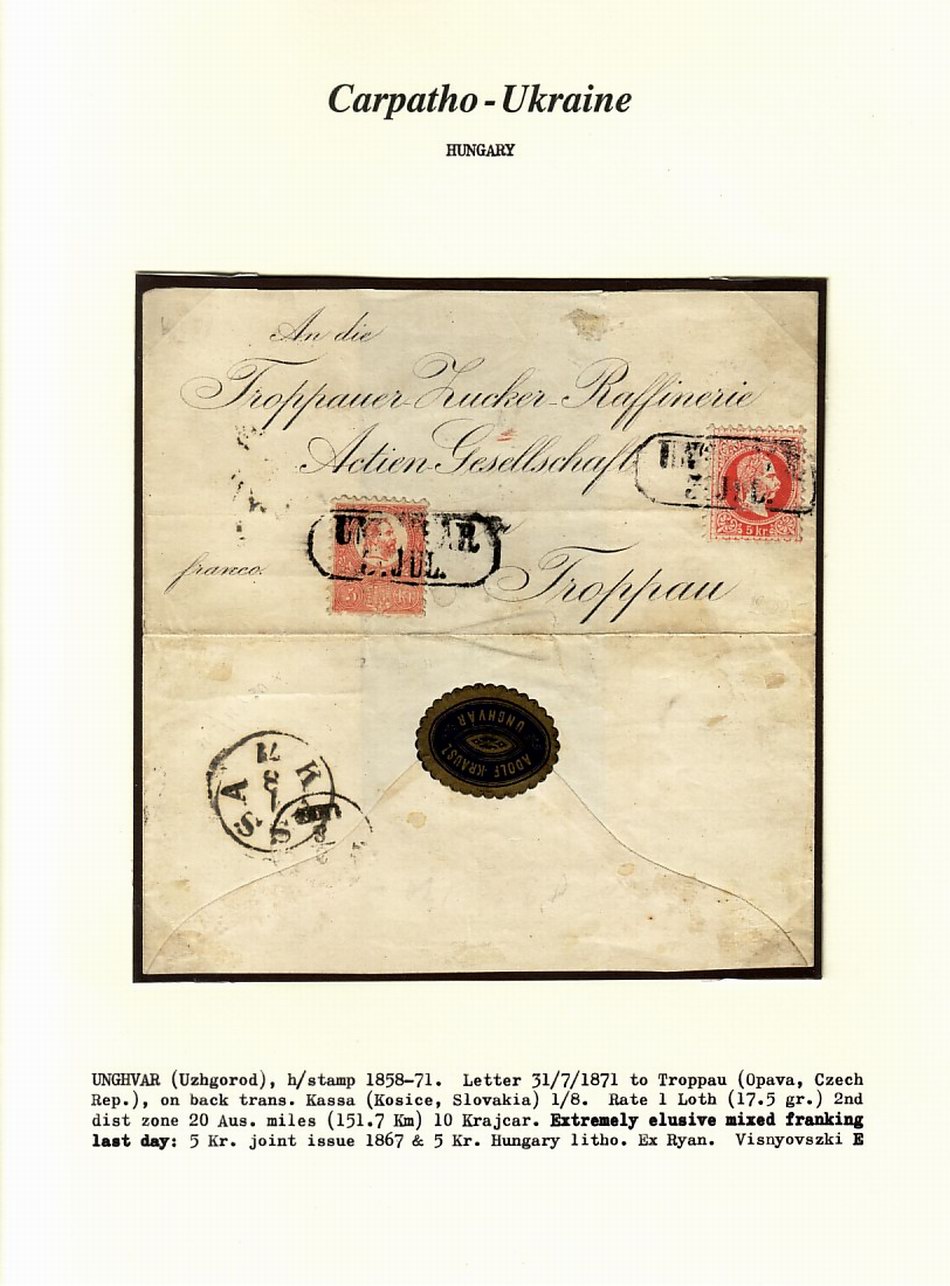 Carpatho - Ukraine
HUNGARY
An die
Troppauer-Zucker-Raffinerie
Actien-Gesellschaft
JUL.
5 kr.
JUL.
5 Kr
franco.
Troppau
ADOLF KRAUSZ
UNGHVAR
KASSA
UNGHVAR (Uzhgorod), h/stamp 1858-71. Letter 31/7/1871 to Troppau (Opava, Czech
Rep.), on back trans. Kassa (Kosice, Slovakia) 1/8. Rate 1 Loth (17.5 gr.) 2nd
dist zone 20 Aus. miles (151.7 Km) 10 Krajcar. Extremely elusive mixed franking
last day: 5 Kr. joint issue 1867 & 5 Kr. Hungary litho. Ex Ryan. Visnyovszki E